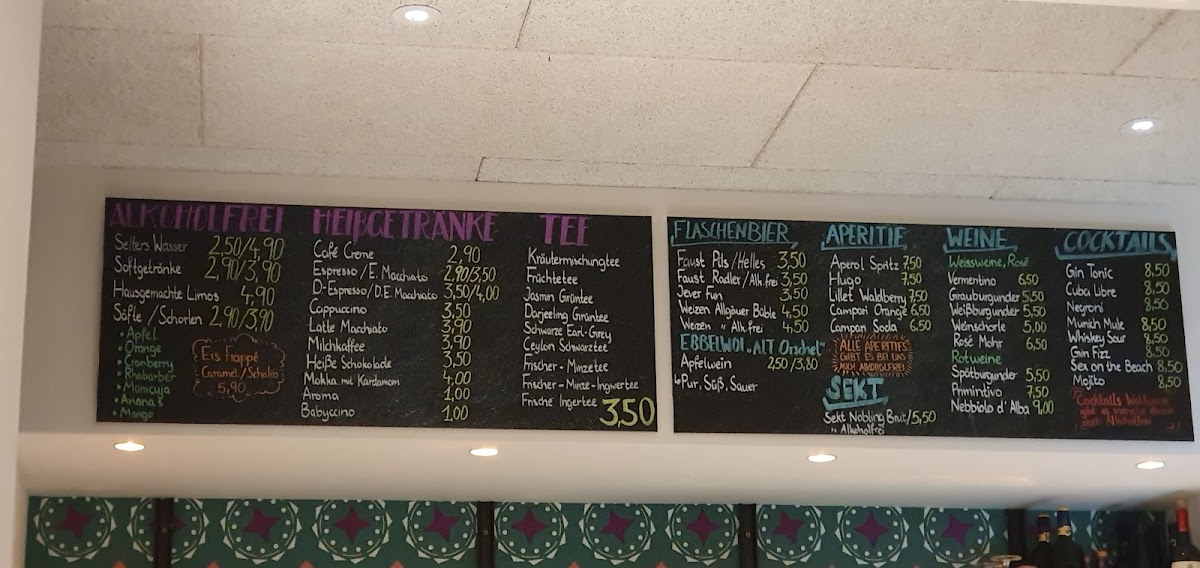 ALKOHOLFREI
Selters Wasser 2,50/4,90
Softgetränke 2,90/3,90
Hausgemachte Limos 4,90
Säfte / Schorlen 2,90/3,90
• Apfel
• Orange
• Cranberry
• Rhabarber
• Maracuja
• Ananas
• Mango
Eis Frappé
Caramel/Schoko
5,90
HEIßGETRÄNKE
Café Creme 2,90
Espresso / E. Macchiato 2,90/3,50
D-Espresso/D.E. Macchiato 3,50/4,00
Cappuccino 3,50
Latte Macchiato 3,90
Milchkaffee 3,90
Heiße Schokolade 3,50
Mokka mit Kardamom 4,00
Aroma 1,00
Babyccino 1,00
TEE
Kräutermischungtee
Früchtetee
Jasmin Grüntee
Darjeeling Grüntee
Schwarze Earl-Grey
Ceylon Schwarztee
Frischer-Minzetee
Frischer-Minze-Ingwertee
Frische Ingertee
3,50
FLASCHENBIER
Faust Pils/Helles 3,50
Faust Radler/Alh.frei 3,50
Jever Fun 3,50
Weizen Allgäuer Büble 4,50
Weizen " Alh.frei 4,50
EBBELWOI „ALT Orschel"
Apfelwein 2,50/3,80
↳Pur, Süß, Sauer
APERITIF
Aperol Spritz 7,50
Hugo 7,50
Lillet Waldberry 7,50
Campari Orange 6,50
Campari Soda 6,50
ALLE APERITIFS
GIBT ES BEI UNS
AUCH ALKOHOLFREI
SEKT
Sekt Nobling Brut/5,50
" Alkoholfrei
WEINE
Weissweine, Rosé
Vermentino 6,50
Grauburgunder 5,50
Weißburgunder 5,50
Weinschorle 5,00
Rosé Mohr 6,50
Rotweine
Spätburgunder 5,50
Primintivo 7,50
Nebbiolo d'Alba 9,00
COCKTAILS
Gin Tonic 8,50
Cuba Libre 8,50
Negroni 8,50
Munich Mule 8,50
Whiskey Sour 8,50
Gin Fizz 8,50
Sex on the Beach 8,50
Mojito 8,50
Cocktails
gibt es
auch Alkoholfrei